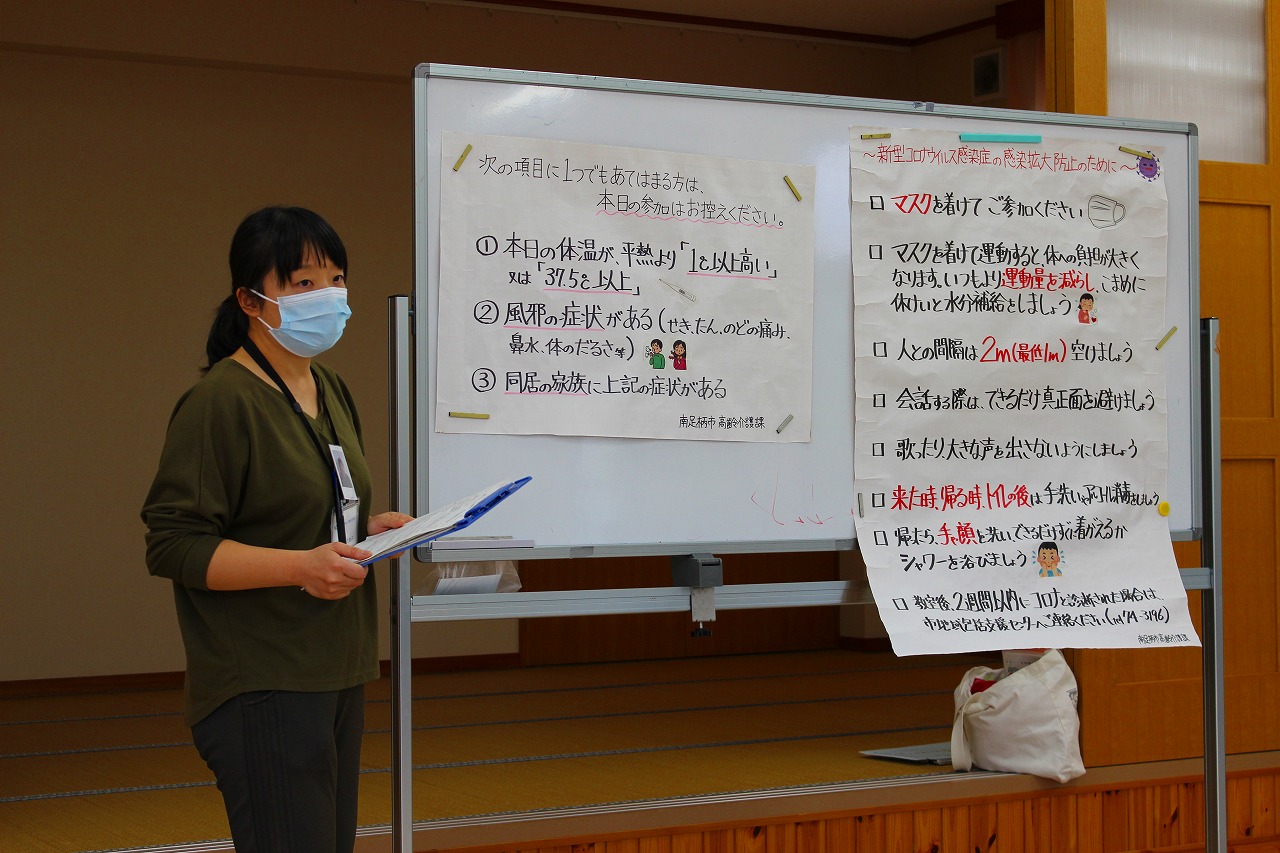 次の項目に1つでもあてはまる方は、
本日の参加はお控えください。
① 本日の体温が、平熱より「1℃以上高い」
又は「37.5℃以上」
② 風邪の症状がある(せき、たん、のどの痛み、
鼻水、体のだるさ等)
③ 同居の家族に上記の症状がある
南足柄市 高齢介護課
～新型コロナウイルス感染症の感染拡大防止のために～
□ マスクを着けて ご参加ください
□ マスクを着けて運動すると、体への負担が大きく
なります。いつもより運動量を減らし、こまめに
休けいと水分補給をしましょう
□ 人との間隔は 2m(最低1m) 空けましょう
□ 会話する際は、できるだけ真正面を避けましょう
□ 歌ったり、大きな声を出さないようにしましょう
□ 来た時、帰る時、トイレの後は 手洗いやアルコール消毒をしましょう
□ 帰ったら、手や顔を洗い、できるだけすぐに着がえるか
シャワーを浴びましょう
□ 教室後、2週間以内に コロナと診断された場合は、
市地域包括支援センターへご連絡ください(tel 74-3196)
南足柄市高齢介護課